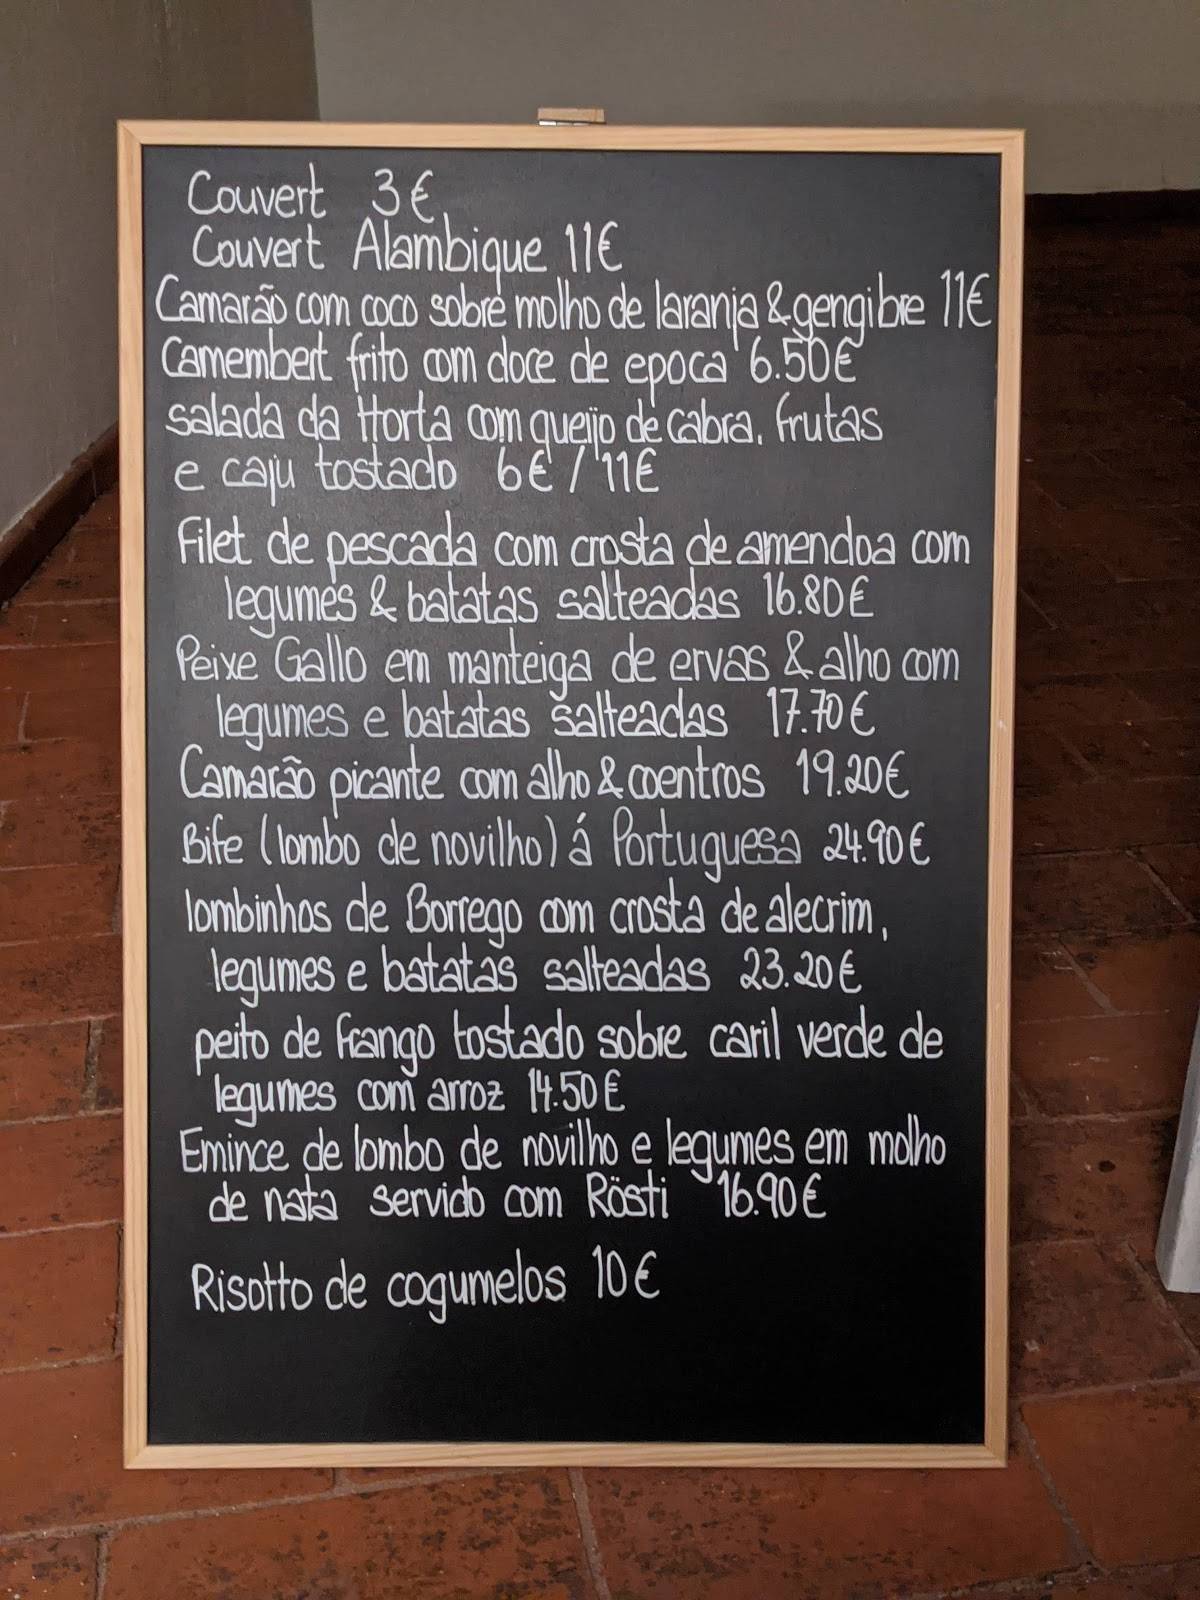 Couvert 3€
Couvert Alambique 11€
Camarão com coco sobre molho de laranja & gengibre 11€
Camembert frito com doce de epoca 6.50€
salada da Horta com queijo de cabra, frutas
e caju tostado 6€ / 11€
Filet de pescada com crosta de amendoa com
legumes & batatas salteadas 16.80€
Peixe Gallo em manteiga de ervas & alho com
legumes e batatas salteadas 17.70€
Camarão picante com alho & coentros 19.20€
Bife (lombo de novilho) á Portuguesa 24.90€
lombinhos de Borrego com crosta de alecrim,
legumes e batatas salteadas 23.20€
peito de frango tostado sobre caril verde de
legumes com arroz 14.50€
Emince de lombo de novilho e legumes em molho
de nata servido com Rösti 16.90€
Risotto de cogumelos 10€